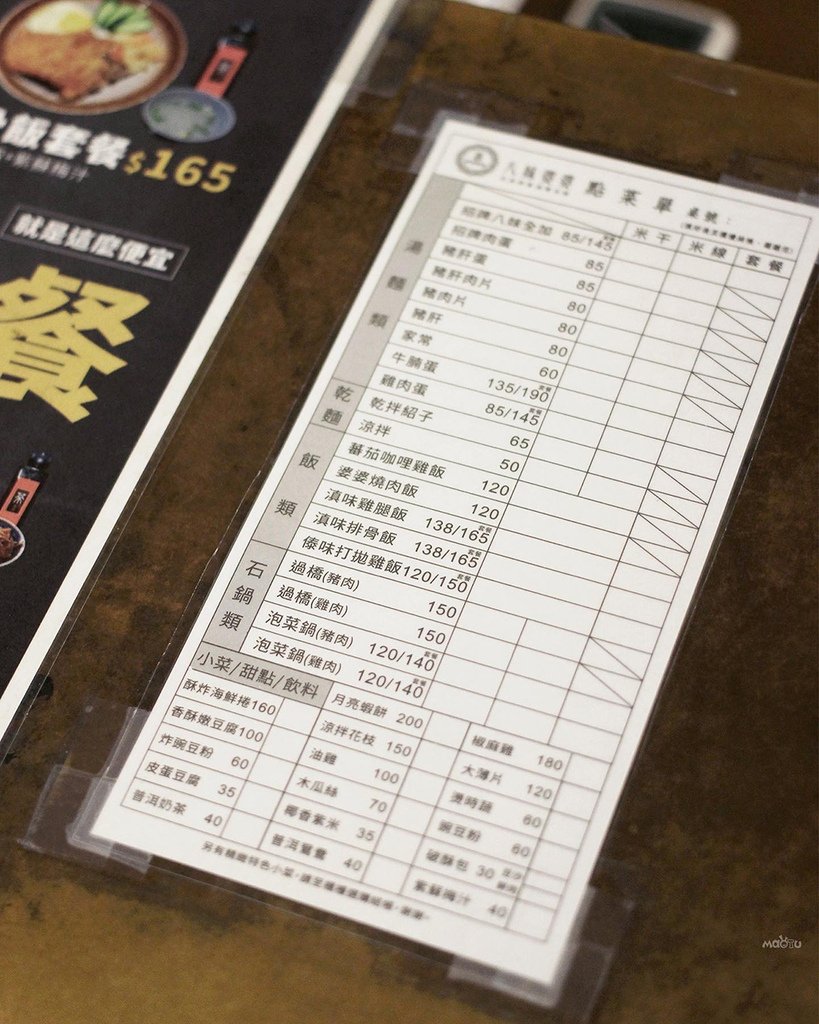 飯套餐$165
就是這麼便宜
餐
茶
點菜單 桌號：
米干 米線 套餐
湯麵類
招牌八妹全加 85/145套餐
招牌肉蛋 85
豬肝蛋 85
豬肝肉片 80
豬肉片 80
豬肝 80
家常 60
牛腩蛋 135/190套餐
雞肉蛋 85/145套餐
乾麵
乾拌紹子 65
涼拌 50
飯類
蕃茄咖哩雞飯 120
婆婆燒肉飯 120
滇味雞腿飯 138/165套餐
滇味排骨飯 138/165套餐
傣味打拋雞飯 120/150套餐
石鍋類
過橋(豬肉) 150
過橋(雞肉) 150
泡菜鍋(豬肉) 120/140套餐
泡菜鍋(雞肉) 120/140套餐
小菜/甜點/飲料
酥炸海鮮捲 160
香酥嫩豆腐 100
炸豌豆粉 60
皮蛋豆腐 35
普洱奶茶 40
月亮蝦餅 200
涼拌花枝 150
油雞 100
木瓜絲 70
椰香紫米 35
普洱鴛鴦 40
椒麻雞 180
大薄片 120
燙時蔬 60
豌豆粉 60
破酥包 30
紫蘇梅汁 40
MaoTu